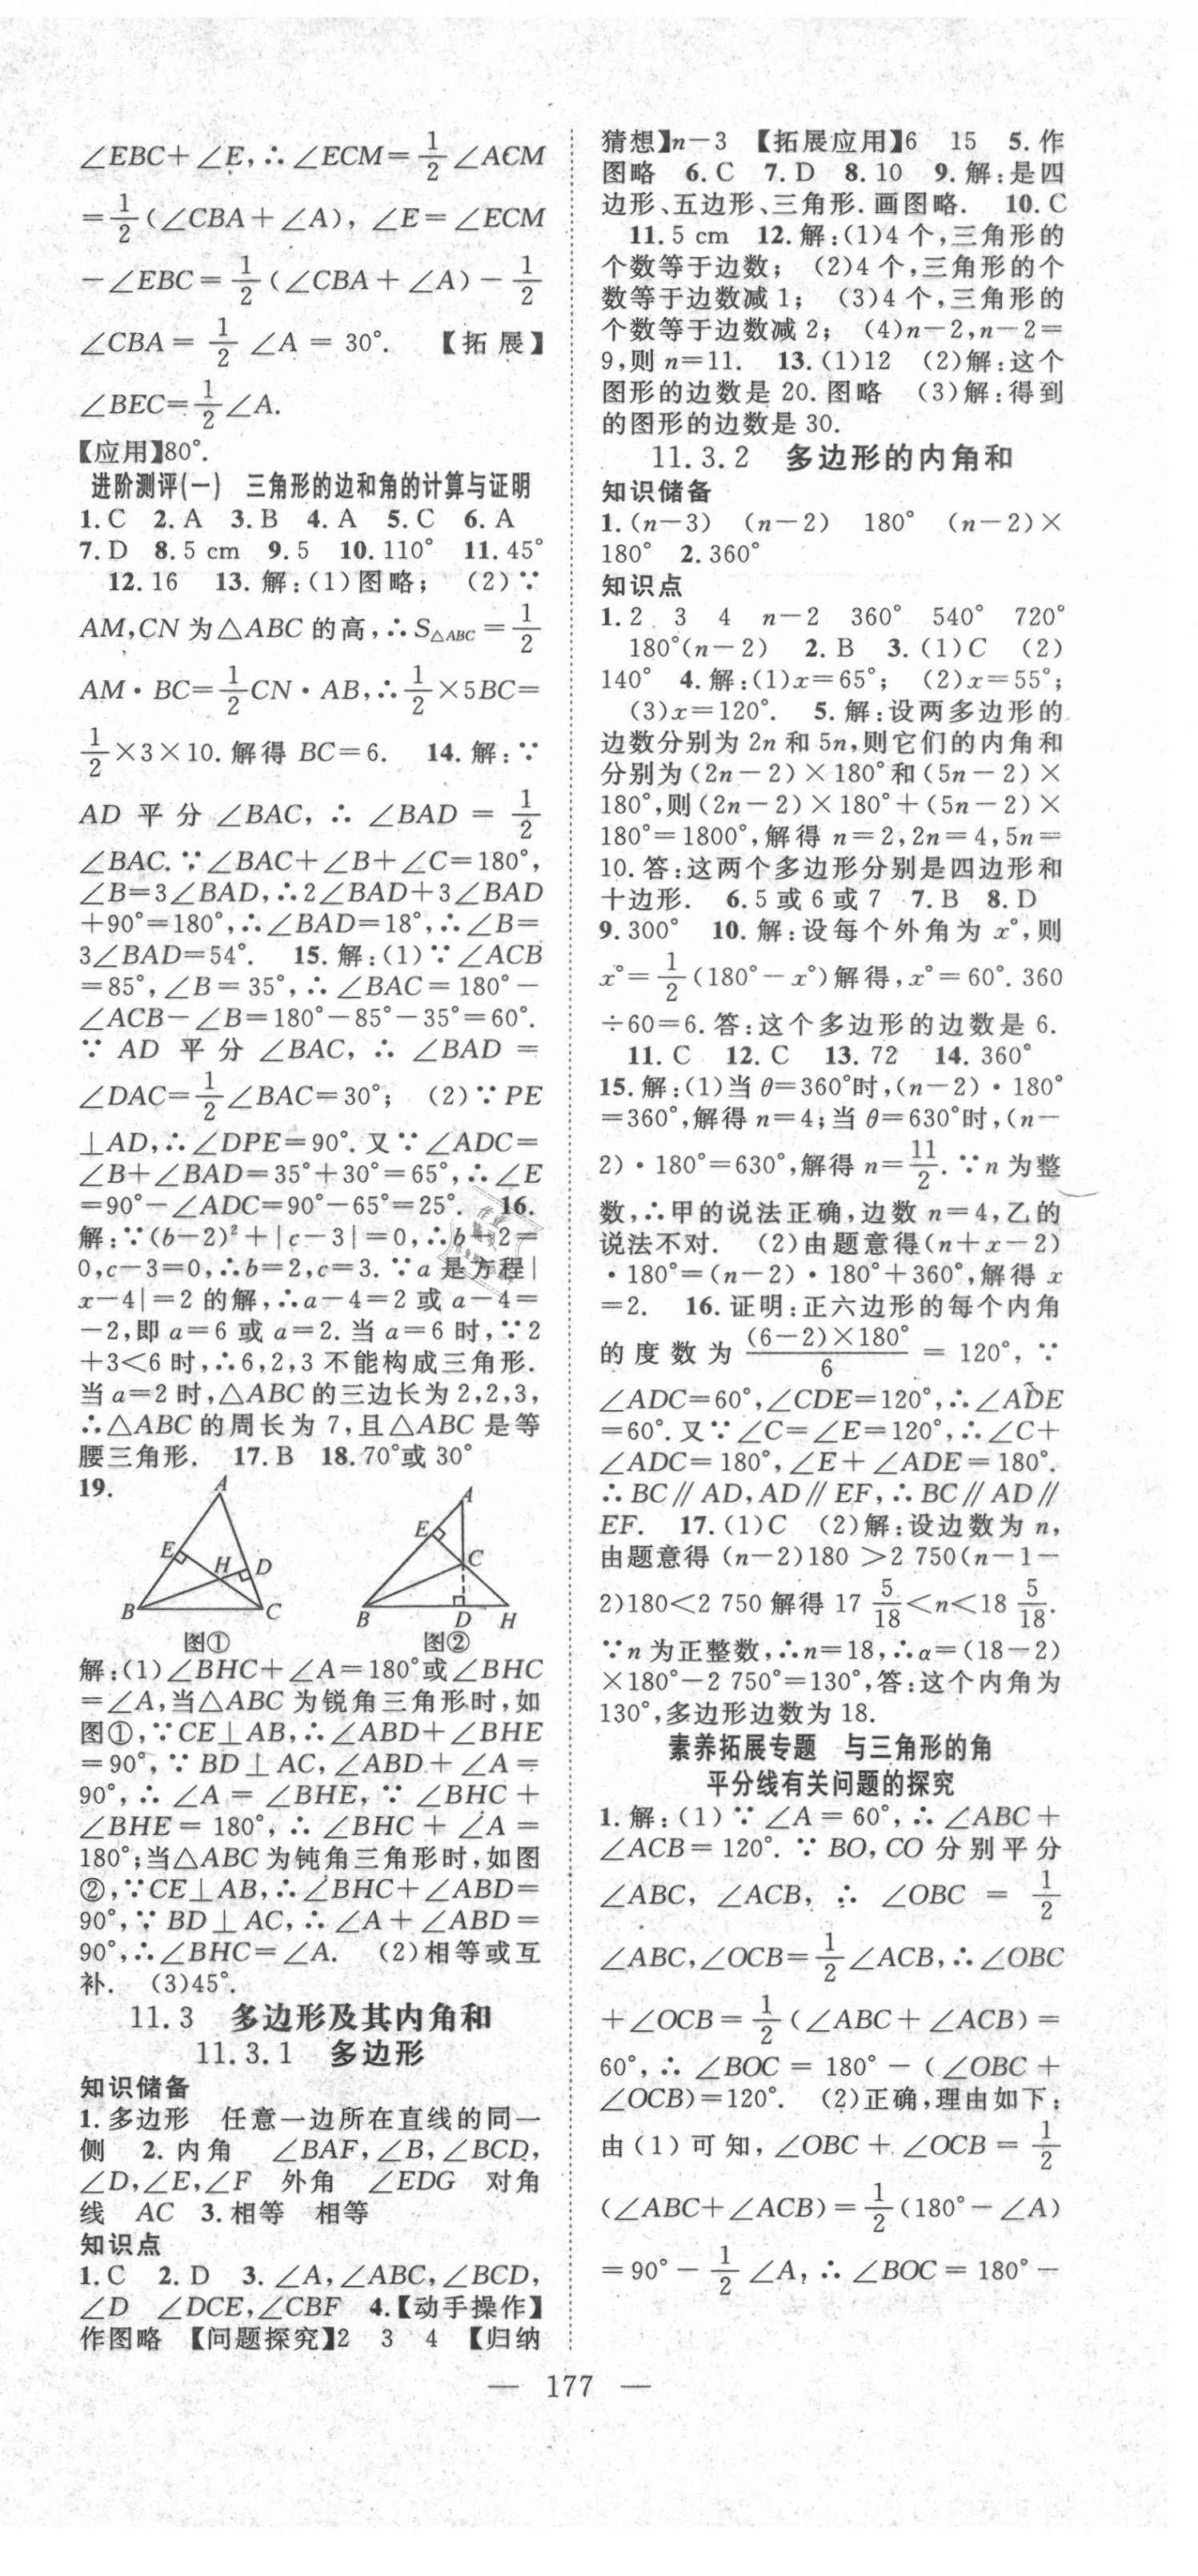 ∠EBC+∠E,∴∠ECM=1/2∠ACM
=1/2(∠CBA+∠A),∠E=∠ECM
-∠EBC=1/2(∠CBA+∠A)-1/2
∠CBA=1/2∠A=30°. 【拓展】
∠BEC=1/2∠A.
【应用】80°.
进阶测评(一) 三角形的边和角的计算与证明
1.C 2.A 3.B 4.A 5.C 6.A
7.D 8.5 cm 9.5 10.110° 11.45°
12.16 13.解:(1)图略; (2)∵
AM,CN为△ABC的高,∴S△ABC=1/2
AM·BC=1/2CN·AB,∴1/2×5BC=
1/2×3×10.解得BC=6. 14.解:∵
AD平分∠BAC,∴∠BAD=1/2
∠BAC.∵∠BAC+∠B+∠C=180°,
∠B=3∠BAD,∴2∠BAD+3∠BAD
+90°=180°,∴∠BAD=18°,∴∠B=
3∠BAD=54°. 15.解:(1)∵∠ACB
=85°,∠B=35°,∴∠BAC=180°-
∠ACB-∠B=180°-85°-35°=60°.
∵AD平分∠BAC,∴∠BAD=
∠DAC=1/2∠BAC=30°; (2)∵PE
⊥AD,∴∠DPE=90°.又∵∠ADC=
∠B+∠BAD=35°+30°=65°,∴∠E
=90°-∠ADC=90°-65°=25°. 16.
解:∵(b-2)²+|c-3|=0,∴b-2=
0,c-3=0,∴b=2,c=3.∵a是方程|
x-4|=2的解,∴a-4=2或a-4=
-2,即a=6或a=2.当a=6时,∵2
+3<6时,∴6,2,3不能构成三角形.
当a=2时,△ABC的三边长为2,2,3,
∴△ABC的周长为7,且△ABC是等
腰三角形. 17.B 18.70°或30°
19.
A
E
H
D
B
C
图①
A
E
C
B
D
H
图②
解:(1)∠BHC+∠A=180°或∠BHC
=∠A,当△ABC为锐角三角形时,如
图①,∵CE⊥AB,∴∠ABD+∠BHE
=90°,∵BD⊥AC,∠ABD+∠A=
90°,∴∠A=∠BHE,∵∠BHC+
∠BHE=180°,∴∠BHC+∠A=
180°;当△ABC为钝角三角形时,如图
②,∵CE⊥AB,∴∠BHC+∠ABD=
90°,∵BD⊥AC,∴∠A+∠ABD=
90°,∴∠BHC=∠A. (2)相等或互
补. (3)45°.
11.3 多边形及其内角和
11.3.1 多边形
知识储备
1.多边形 任意一边所在直线的同一
侧 2.内角 ∠BAF,∠B,∠BCD,
∠D,∠E,∠F 外角 ∠EDG 对角
线 AC 3.相等 相等
知识点
1.C 2.D 3.∠A,∠ABC,∠BCD,
∠D ∠DCE,∠CBF 4.【动手操作】
作图略 【问题探究】2 3 4 【归纳
猜想】n-3 【拓展应用】6 15 5.作
图略 6.C 7.D 8.10 9.解:是四
边形、五边形、三角形.画图略. 10.C
11.5 cm 12.解:(1)4个,三角形的
个数等于边数; (2)4个,三角形的个
数等于边数减1; (3)4个,三角形的
个数等于边数减2; (4)n-2,n-2=
9,则n=11. 13.(1)12 (2)解:这个
图形的边数是20.图略 (3)解:得到
的图形的边数是30.
11.3.2 多边形的内角和
知识储备
1.(n-3) (n-2) 180° (n-2)×
180° 2.360°
知识点
1.2 3 4 n-2 360° 540° 720°
180°(n-2) 2.B 3.(1)C (2)
140° 4.解:(1)x=65°; (2)x=55°;
(3)x=120°. 5.解:设两多边形的
边数分别为2n和5n,则它们的内角和
分别为(2n-2)×180°和(5n-2)×
180°,则(2n-2)×180°+(5n-2)×
180°=1800°,解得n=2,2n=4,5n=
10.答:这两个多边形分别是四边形和
十边形. 6.5或6或7 7.B 8.D
9.300° 10.解:设每个外角为x°,则
x°=1/2(180°-x°)解得,x°=60°.360
÷60=6.答:这个多边形的边数是6.
11.C 12.C 13.72 14.360°
15.解:(1)当θ=360°时,(n-2)·180°
=360°,解得n=4;当θ=630°时,(n-
2)·180°=630°,解得n=11/2.∵n为整
数,∴甲的说法正确,边数n=4,乙的
说法不对. (2)由题意得(n+x-2)
·180°=(n-2)·180°+360°,解得x
=2. 16.证明:正六边形的每个内角
的度数为(6-2)×180°/6=120°,∵
∠ADC=60°,∠CDE=120°,∴∠ADE
=60°.又∵∠C=∠E=120°,∴∠C+
∠ADC=180°,∠E+∠ADE=180°.
∴BC∥AD,AD∥EF,∴BC∥AD∥
EF. 17.(1)C (2)解:设边数为n,
由题意得(n-2)180>2 750(n-1-
2)180<2 750解得17 5/18<n<18 5/18.
∵n为正整数,∴n=18,∴α=(18-2)
×180°-2 750°=130°,答:这个内角为
130°,多边形边数为18.
素养拓展专题 与三角形的角
平分线有关问题的探究
1.解:(1)∵∠A=60°,∴∠ABC+
∠ACB=120°.∵BO,CO分别平分
∠ABC,∠ACB,∴∠OBC=1/2
∠ABC,∠OCB=1/2∠ACB,∴∠OBC
+∠OCB=1/2(∠ABC+∠ACB)=
60°,∴∠BOC=180°-(∠OBC+
∠OCB)=120°. (2)正确,理由如下:
由(1)可知,∠OBC+∠OCB=1/2
(∠ABC+∠ACB)=1/2(180°-∠A)
=90°-1/2∠A,∴∠BOC=180°-
— 177 —